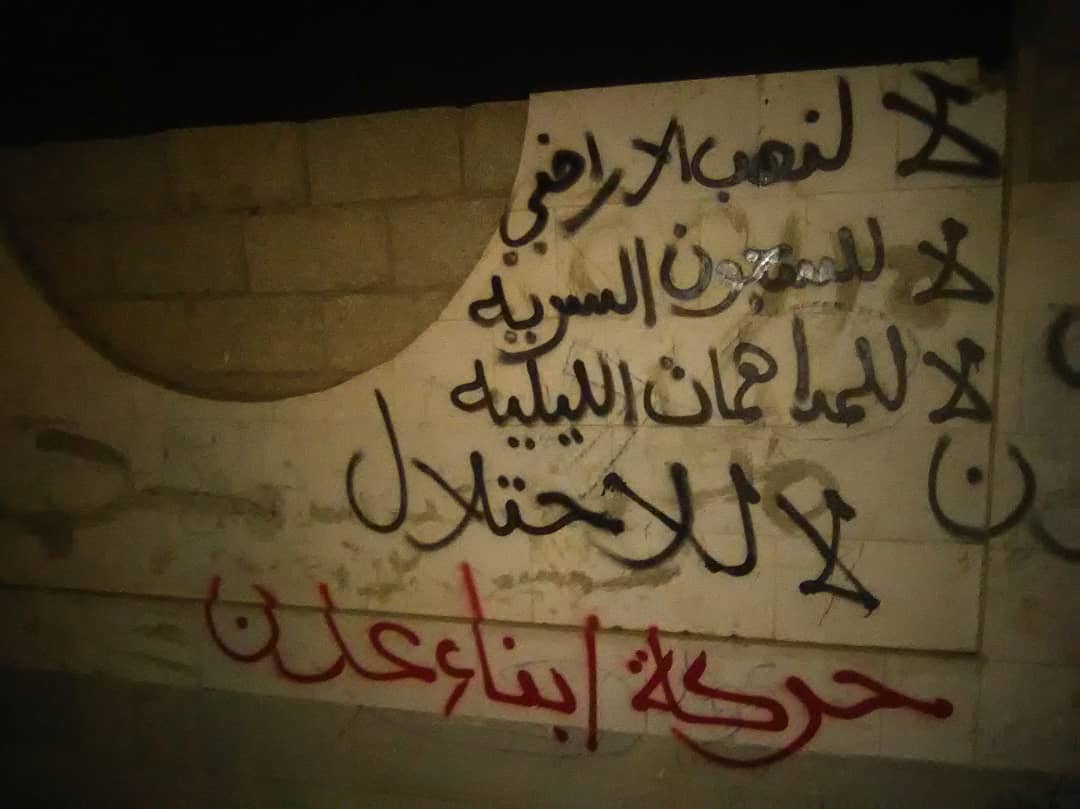 لا لنهب الاراضي
لا للسجون السريه
لا للمداهمات الليليه
لا للاحتلال
حركة ابناء عدن